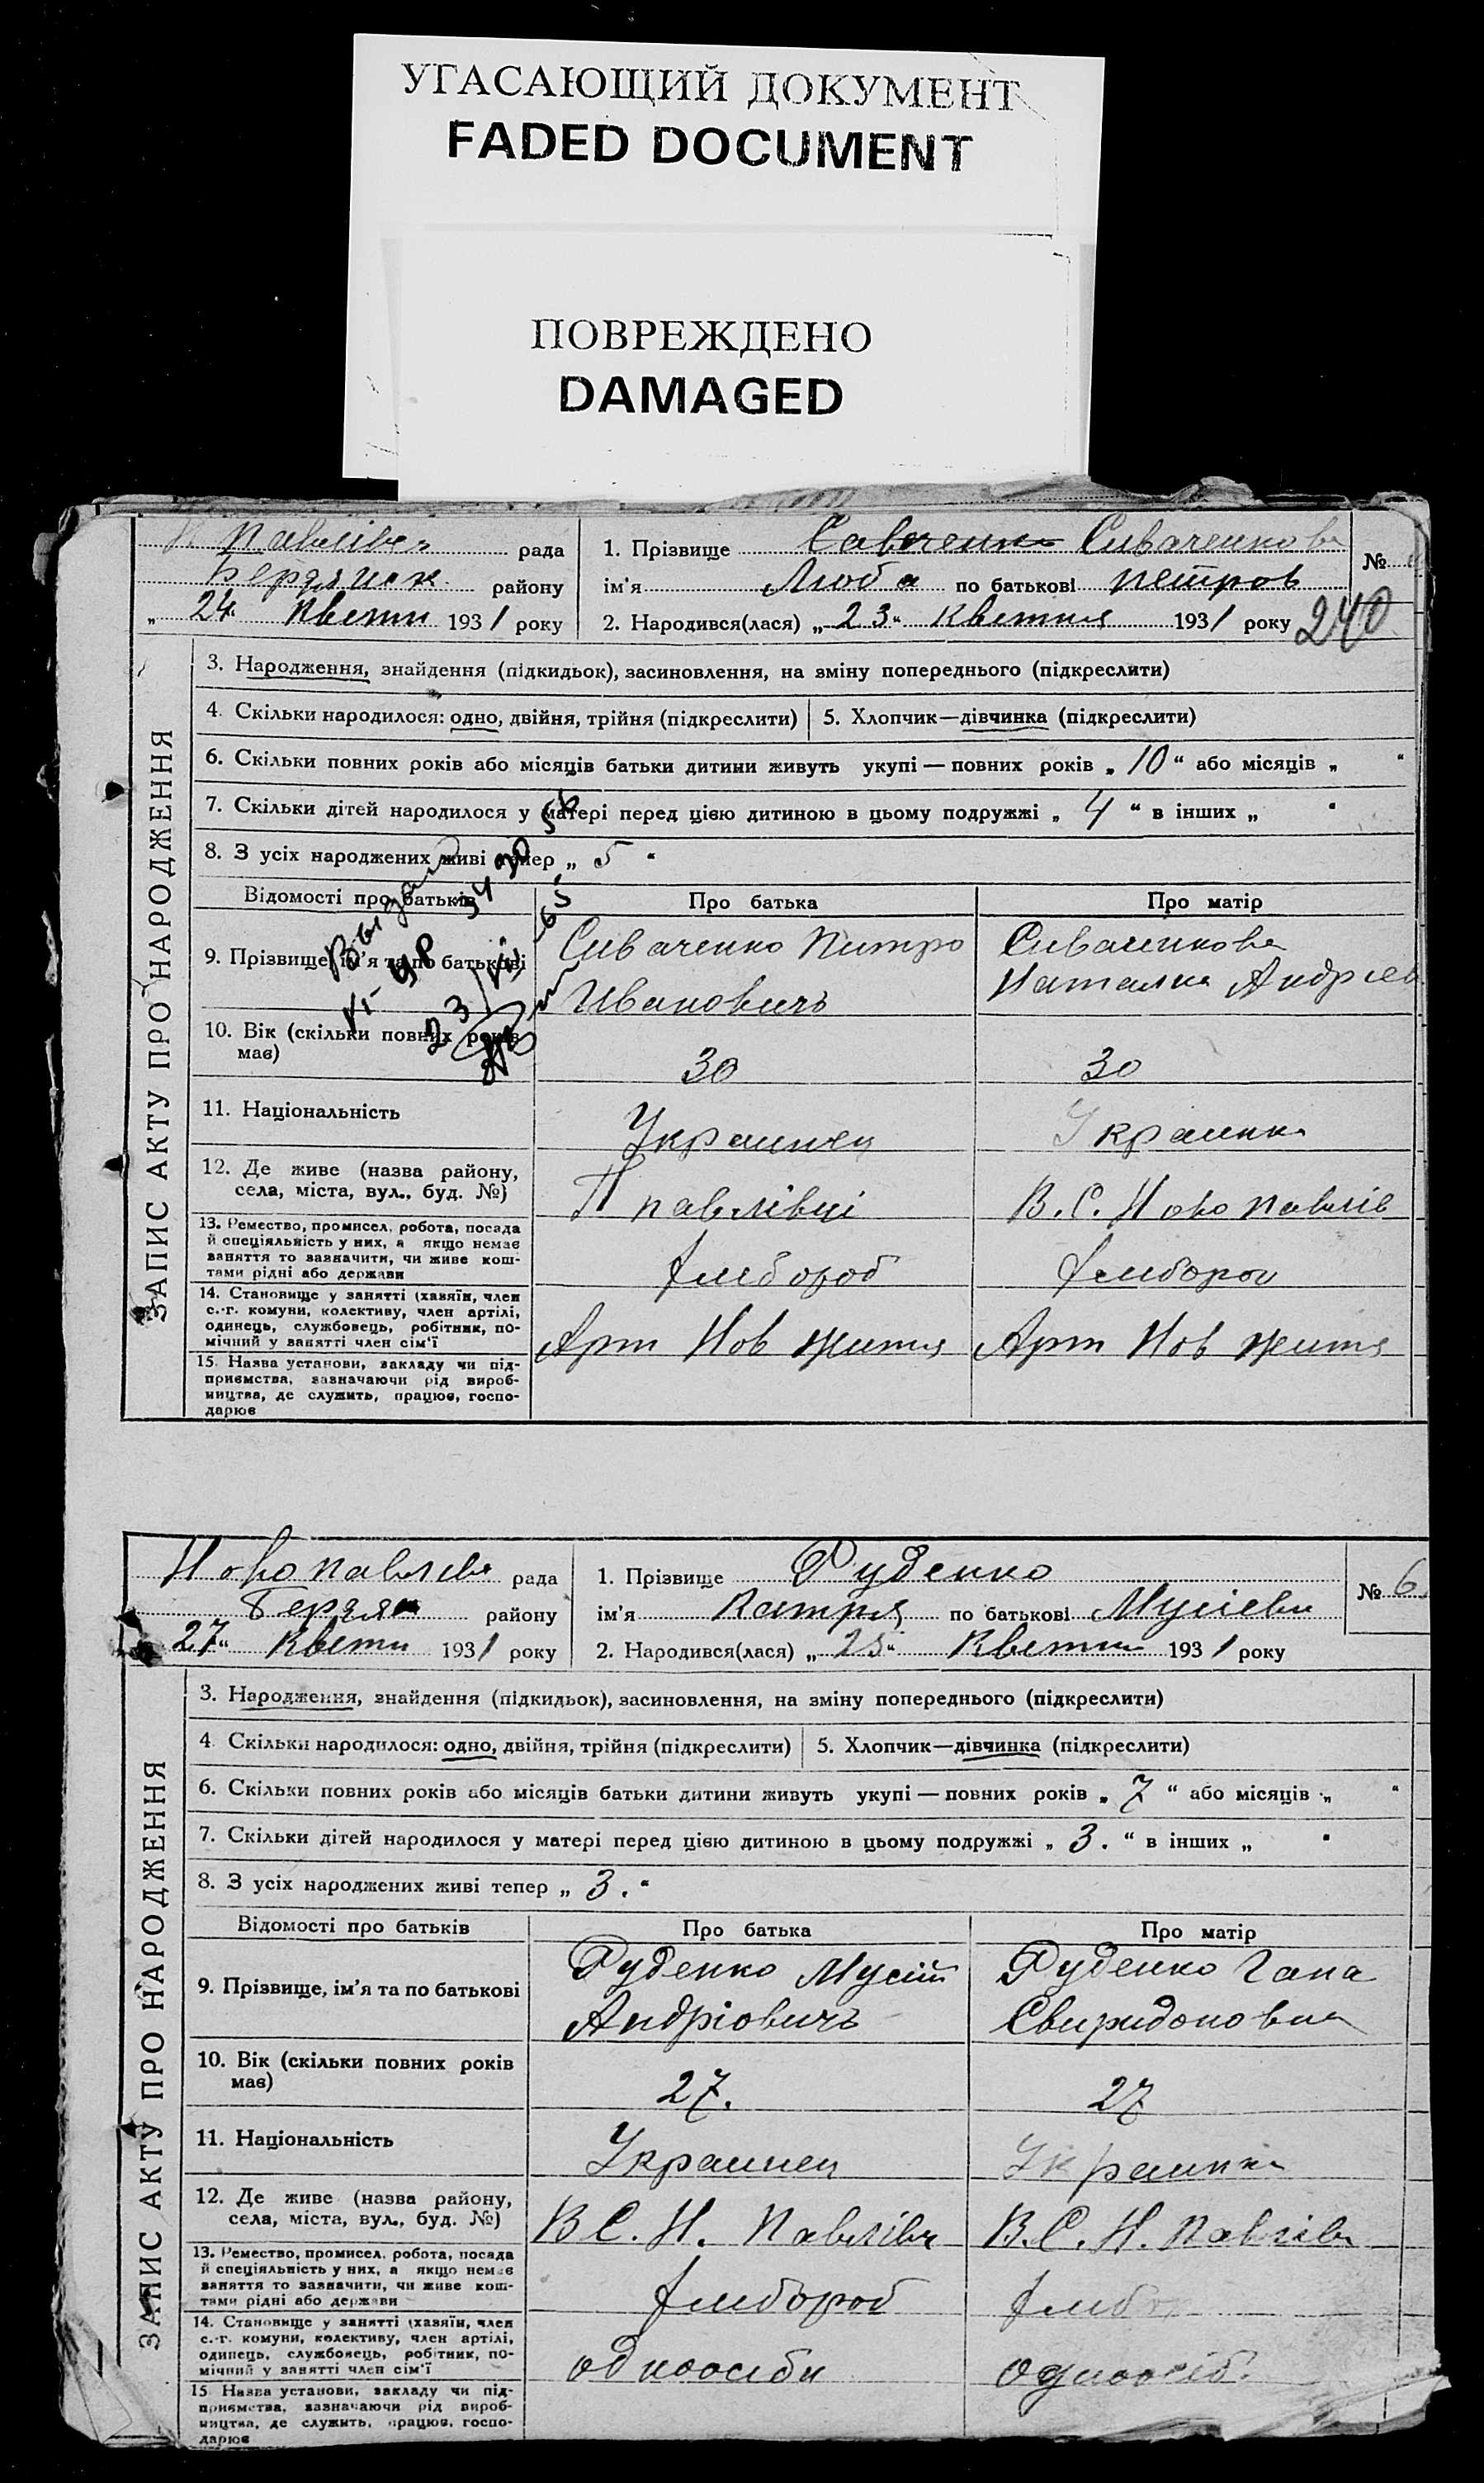 УГАСАЮЩИЙ ДОКУМЕНТ
FADED DOCUMENT
ПОВРЕЖДЕНО
DAMAGED
Н Павлівка рада
Бердянск району
„ 24 „ Квітн 1931 року
1. Прізвище Савченко Сиваченкова
ім'я Люба по батькові Петров
2. Народився(лася) „ 23 “ Квітня 1931 року
№
240
ЗАПИС АКТУ ПРО НАРОДЖЕННЯ
3. Народження, знайдення (підкидьок), засиновлення, на зміну попереднього (підкреслити)
4. Скільки народилося: одно, двійня, трійня (підкреслити)
5. Хлопчик—дівчинка (підкреслити)
6. Скільки повних років або місяців батьки дитини живуть укупі — повних років „ 10 “ або місяців „ “
7. Скільки дітей народилося у матері перед цією дитиною в цьому подружжі „ 4 “ в інших „ “
8. З усіх народжених живі тепер „ 5 “
Відомості про батьків
Про батька
Про матір
9. Прізвище, ім'я та по батькові
Сиваченко Питро
Ивановичъ
Сиваченкова
Наталка Андріев
10. Вік (скільки повних років
має)
30
30
11. Національність
Украинец
Украинка
12. Де живе (назва району,
села, міста, вул., буд. №)
Павлівці
В. С. Ново Павлів
13. Ремество, промисел, робота, посада
й спеціяльність у них, а якщо немає
заняття то зазначити, чи живе кош-
тами рідні або держави
хлібороб
хлібороб
14. Становище у занятті (хазяїн, член
с.-г. комуни, колективу, член артілі,
одинець, службовець, робітник, по-
мічний у занятті член сім'ї
Арт Нов життя
Арт Нов життя
15. Назва установи, закладу чи під-
приємства, зазначаючи рід вироб-
ництва, де служить, працює, госпо-
дарює
Ново Павлівк рада
Бердян району
27 “ Квітн 1931 року
1. Прізвище Руденко
ім'я Катря по батькові Мусіевн
2. Народився(лася) „ 25 “ Квітн 1931 року
№ 6
ЗАПИС АКТУ ПРО НАРОДЖЕННЯ
3. Народження, знайдення (підкидьок), засиновлення, на зміну попереднього (підкреслити)
4. Скільки народилося: одно, двійня, трійня (підкреслити)
5. Хлопчик—дівчинка (підкреслити)
6. Скільки повних років або місяців батьки дитини живуть укупі — повних років „ 7 “ або місяців „ “
7. Скільки дітей народилося у матері перед цією дитиною в цьому подружжі „ 3. “ в інших „ “
8. З усіх народжених живі тепер „ 3. “
Відомості про батьків
Про батька
Про матір
9. Прізвище, ім'я та по батькові
Руденко Мусій
Андріовичъ
Руденко Гана
Свиридоновна
10. Вік (скільки повних років
має)
27.
27
11. Національність
Украинец
Украинка
12. Де живе (назва району,
села, міста, вул., буд. №)
В С. Н. Павлівк
В. С. Н. Павлівк
13. Ремество, промисел, робота, посада
й спеціяльність у них, а якщо немає
заняття то зазначити, чи живе кош-
тами рідні або держави
хлібороб
хлібор
14. Становище у занятті (хазяїн, член
с.-г. комуни, колективу, член артілі,
одинець, службовець, робітник, по-
мічний у занятті член сім'ї
одноосібн
одноосіб.
15 Назва установи, закладу чи під-
приємства, зазначаючи рід вироб-
ництва, де служить, працює, госпо-
дарює